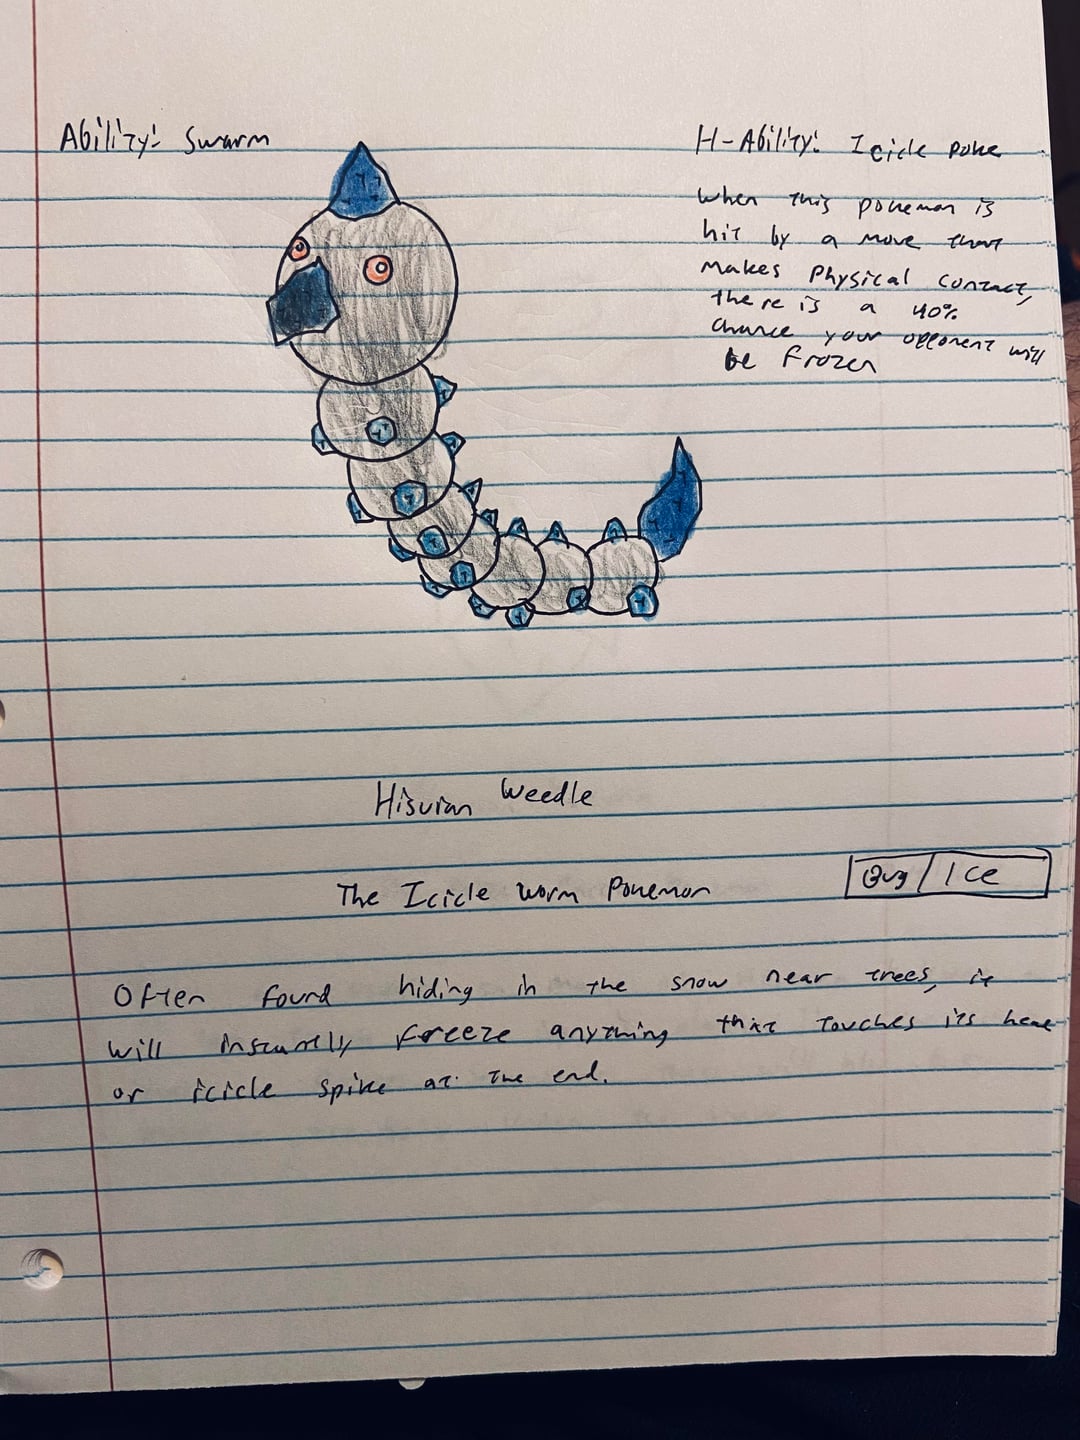 Ability: Swarm
H-Ability: Icicle Poke
When this pokemon is
hit by a move that
makes physical contact,
there is a 40%
chance your opponent will
be frozen
Hisuian Weedle
The Icicle Worm Pokemon
Bug / Ice
Often found hiding in the snow near trees, it
will instantly freeze anything that touches its
or icicle spike at the end.